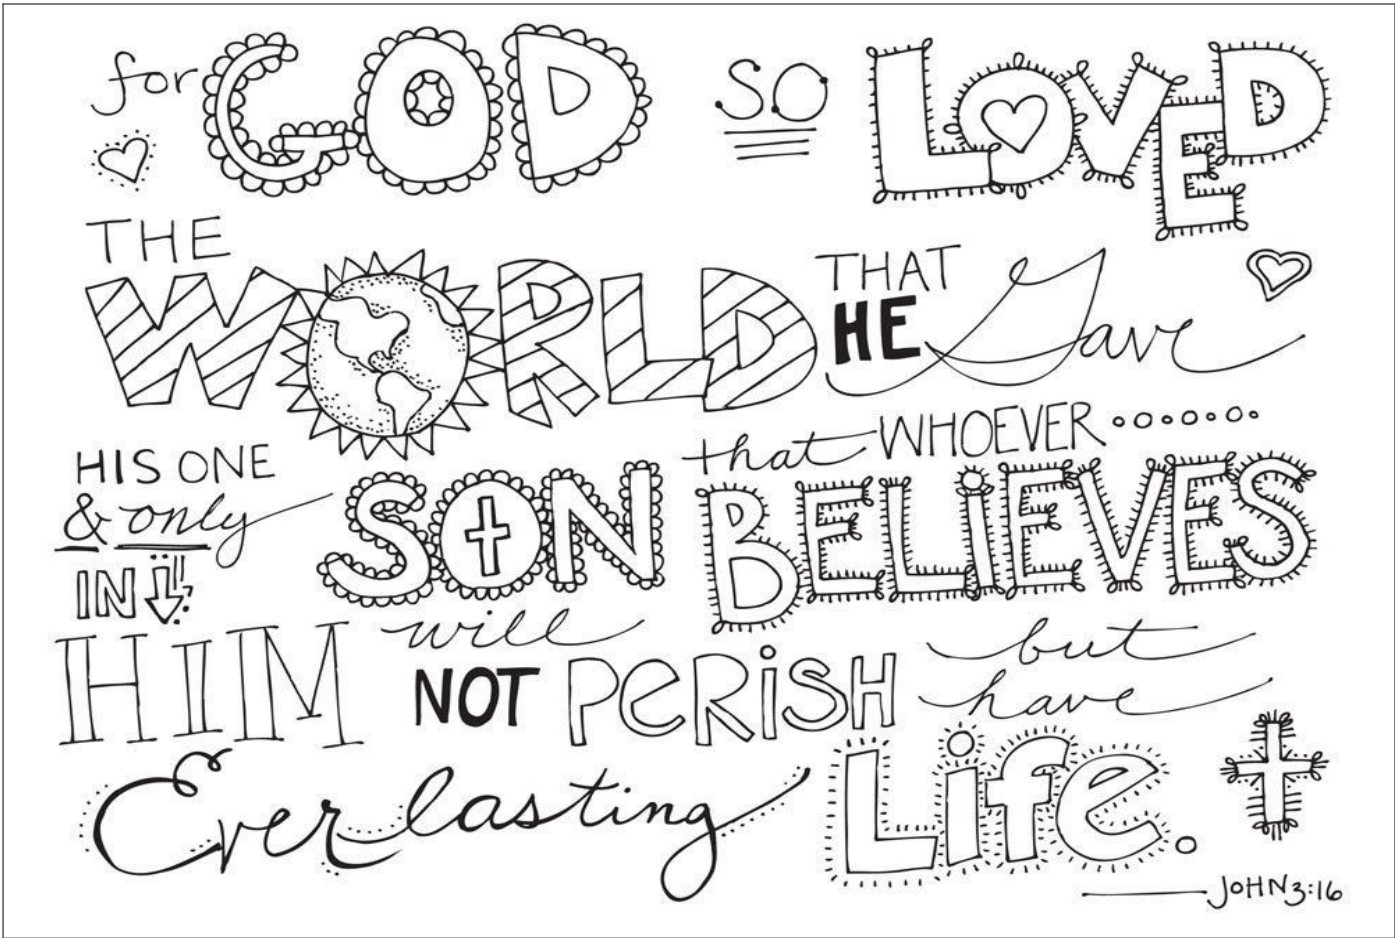 for GOD so LOVED
THE WORLD THAT HE Gave
HIS ONE & only SON that WHOEVER BELiEVES
IN HIM will NOT PeRiSH but have
Everlasting Life.
JOHN 3:16